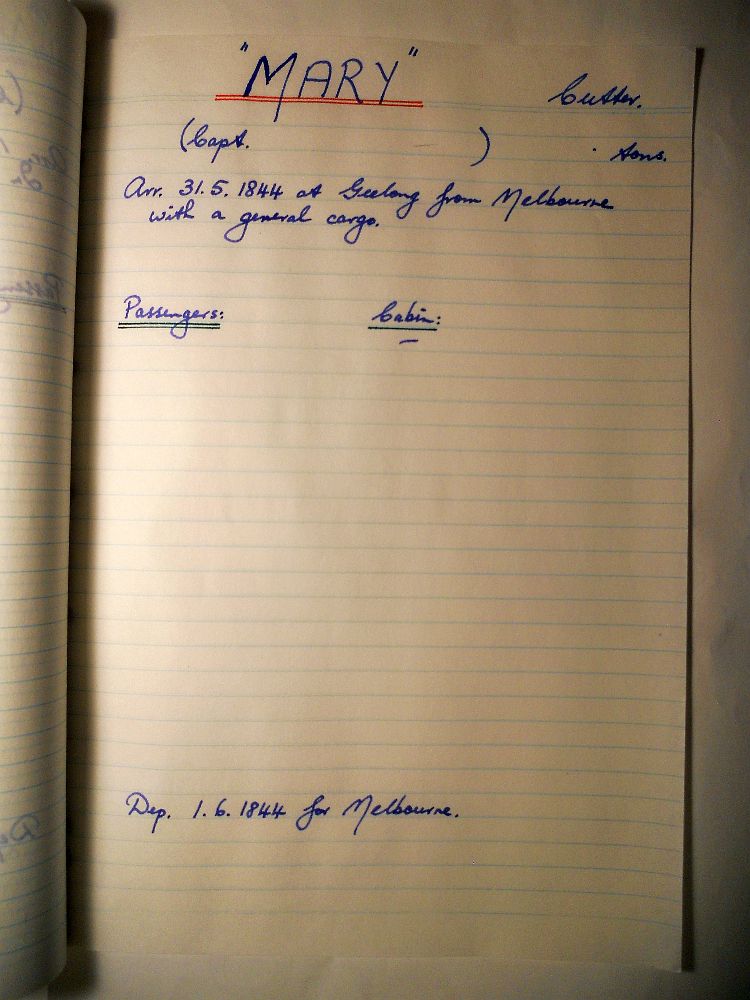 "MARY"
Cutter.
(Capt. )
tons.
Arr. 31.5.1844 at Geelong from Melbourne
with a general cargo.
Passengers: Cabin:
–
Dep. 1.6.1844 for Melbourne.